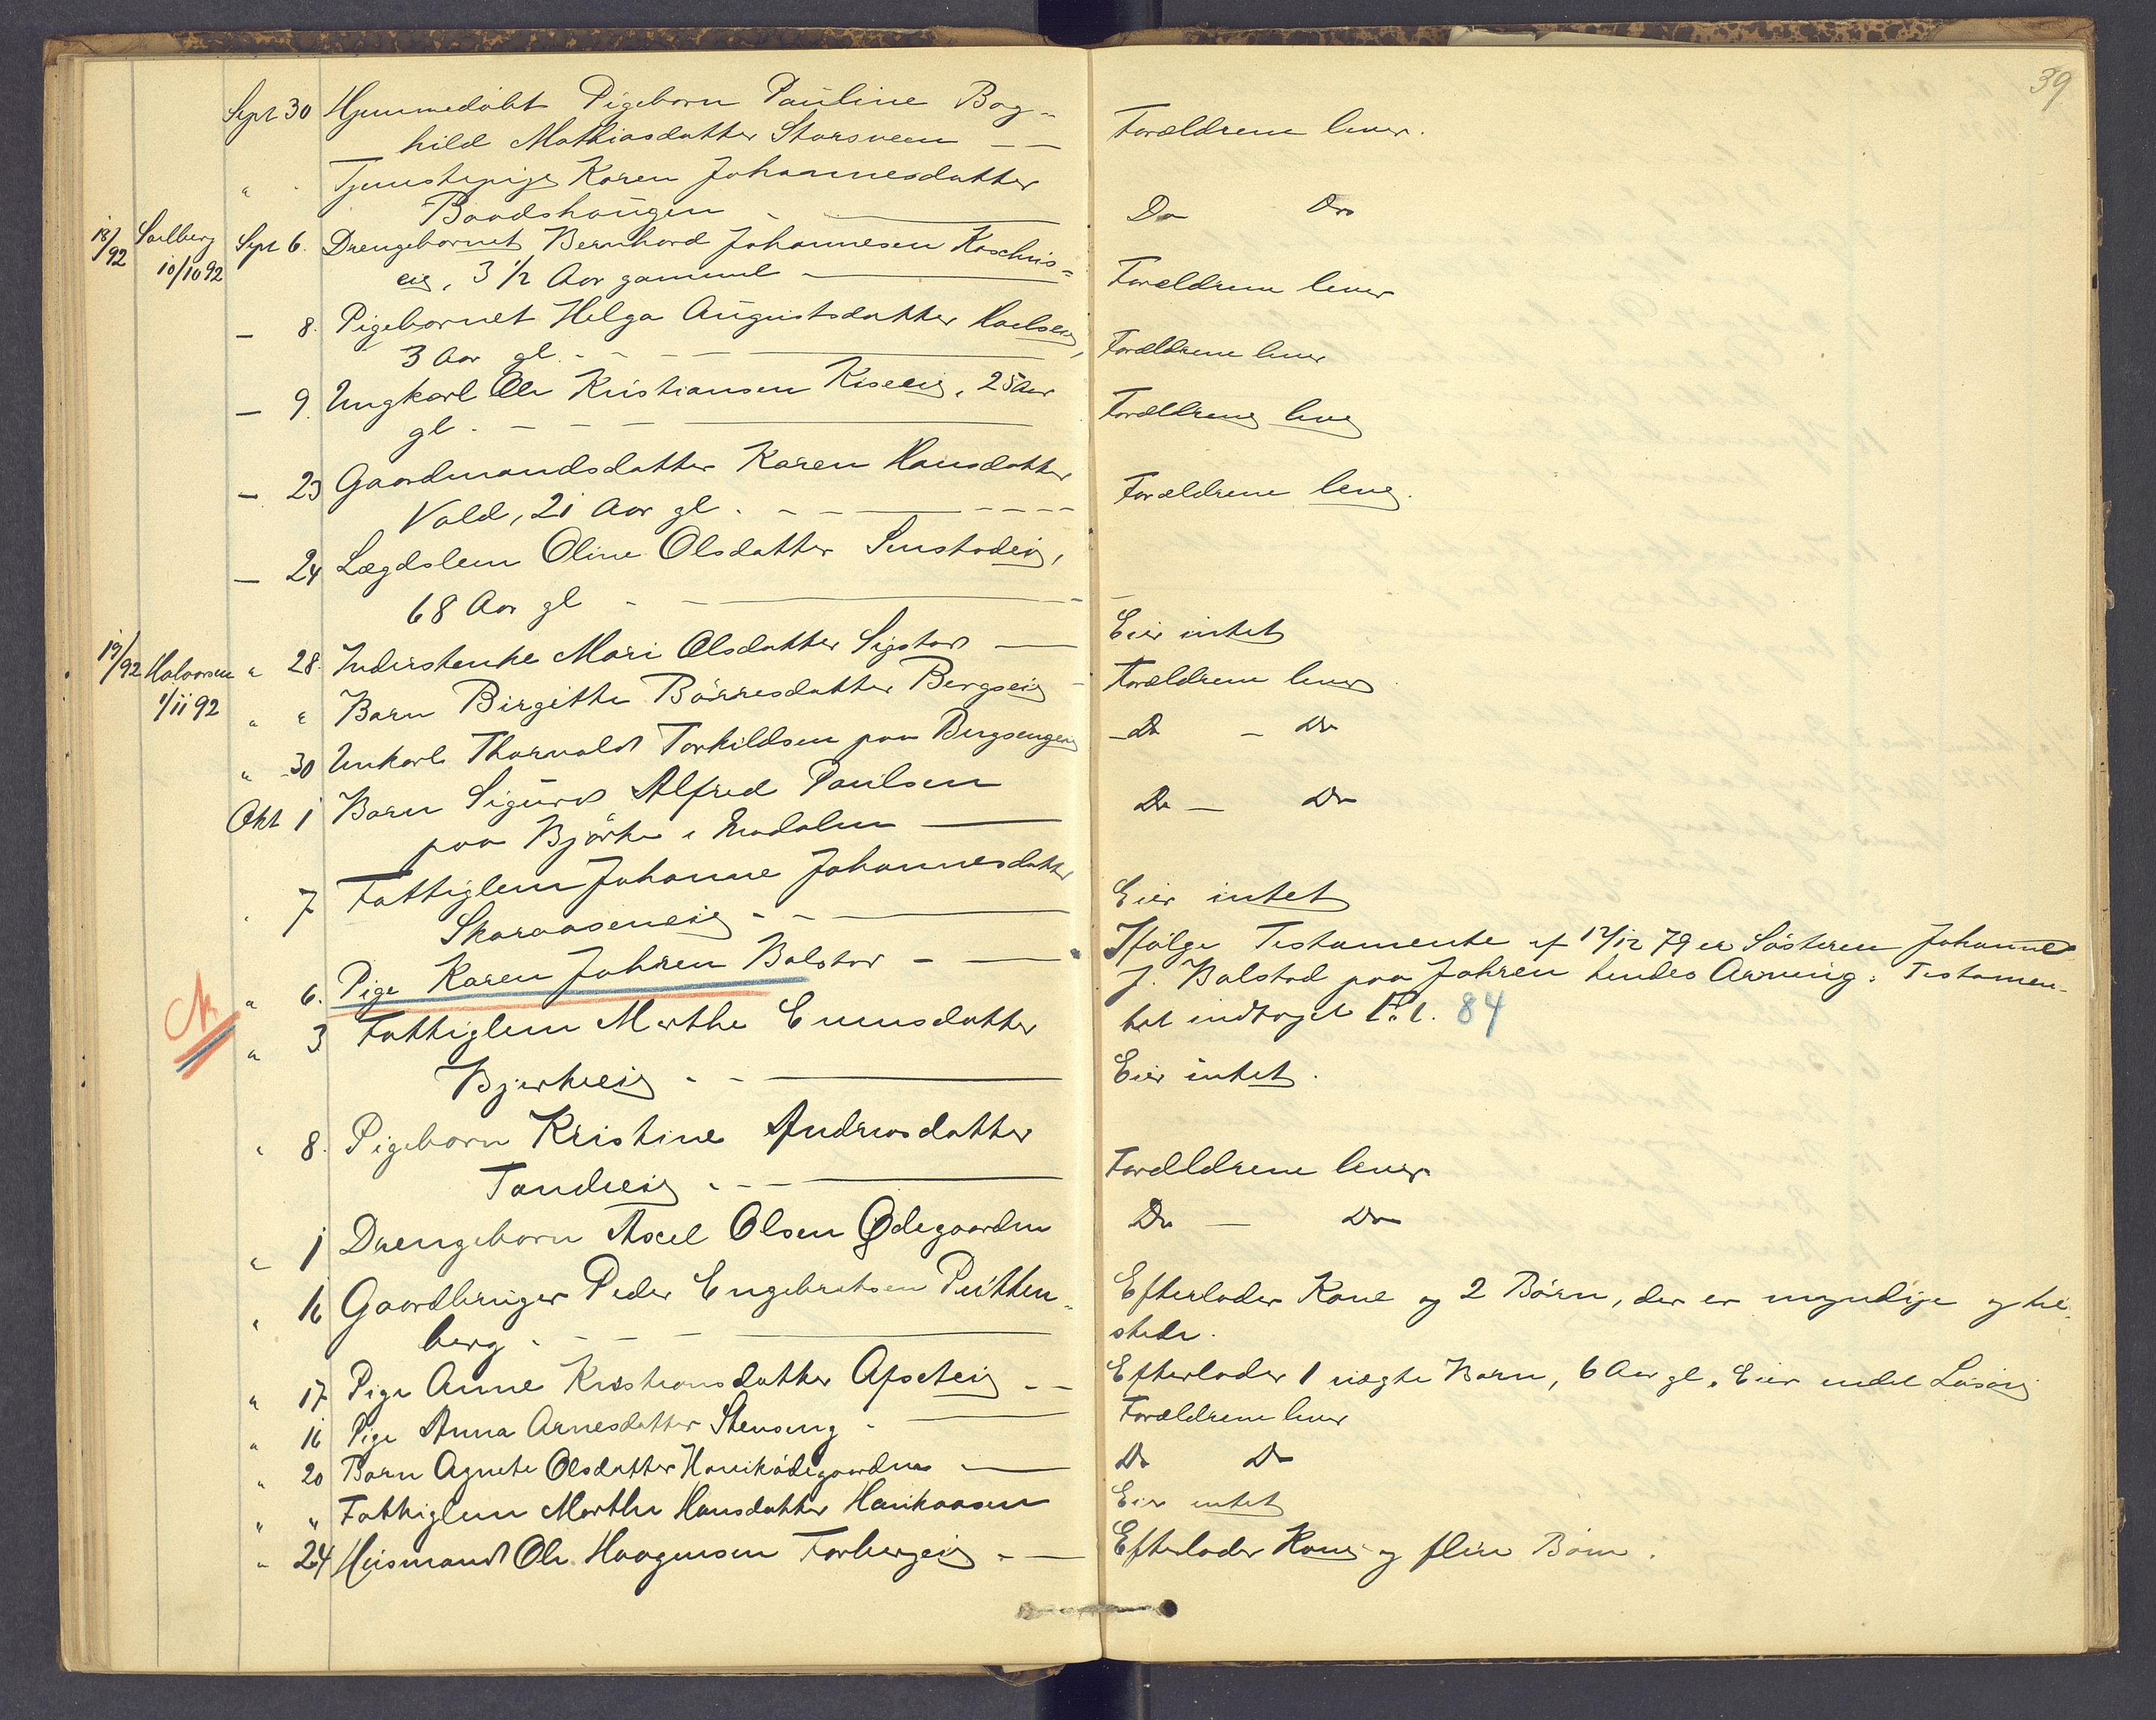 39
Sept 30 Hjemmedöbt Pigebarn Pauline Bog-
hild Mathiasdatter Storsveen Forældrene lever.
" " Tjenestepige Karen Johannesdatter
Baadshaugen Do Do
18/92 Solberg 10/10 92 Sept 6. Drengebarnet Bernhard Johannesen
eie, 3 1/2 Aar gammel Forældrene lever
— 8. Pigebarnet Helga Augustsdatter
3 Aar gl. Forældrene lever
— 9. Ungkarl Ole Kristiansen Kiseeie, 25 Aar
gl. Forældrene leve
— 23 Gaardmandsdatter Karen Hansdatter
Vold, 21 Aar gl. Forældrene leve.
— 24 Lægdslem Oline Olsdatter
68 Aar gl Eier intet
19/92 Halvorsen 1/11 92 " 28. Inderstenke Mari Olsdatter Sigstad
" " Barn Birgithe Börresdatter Bergseie Forældrene lever
" 30 Unkarl Thorvald Torkildsen paa Bergsengen Do - Do
Okt 1 Barn Sigurd Alfred Paulsen
paa Björke i Do — Do
" 7 Fattiglem Johanne Johannesdatter
Skaraaseneie Eier intet
" 6. Pige Karen Johsen Balstad Ifölge Testamente af 12/12 79 er Sösteren Johanne
J. Balstad paa Johsen hendes Arving. Testamen-
tet indtaget P.1. 84
" 3 Fattiglem Marthe Evensdatter
Bjerkeeie Eier intet.
" 8. Pigebarn Kristine Andreasdatter
Tandeeie Forældrene lever
" 1 Drengebarn Axel Olsen Ödegaarden Do — Do
" 16 Gaardbruger Peder Engebretsen Pütten-
berg Efterlader Kone og 2 Börn, der er myndige og tilstede.
" 17 Pige Anne Kristiansdatter Efterlader 1 uægte Barn, 6 Aar gl. Eier endel Lösöre
" 16 Pige Anna Arnesdatter Stenseng Forældrene lever
" 20 Barn Agnete Olsdatter Do Do
" " Fattiglem Marthe Hansdatter Eier intet
" 24 Husmand Ole Haagensen Forbergeie Efterlader Kone og flere Börn.